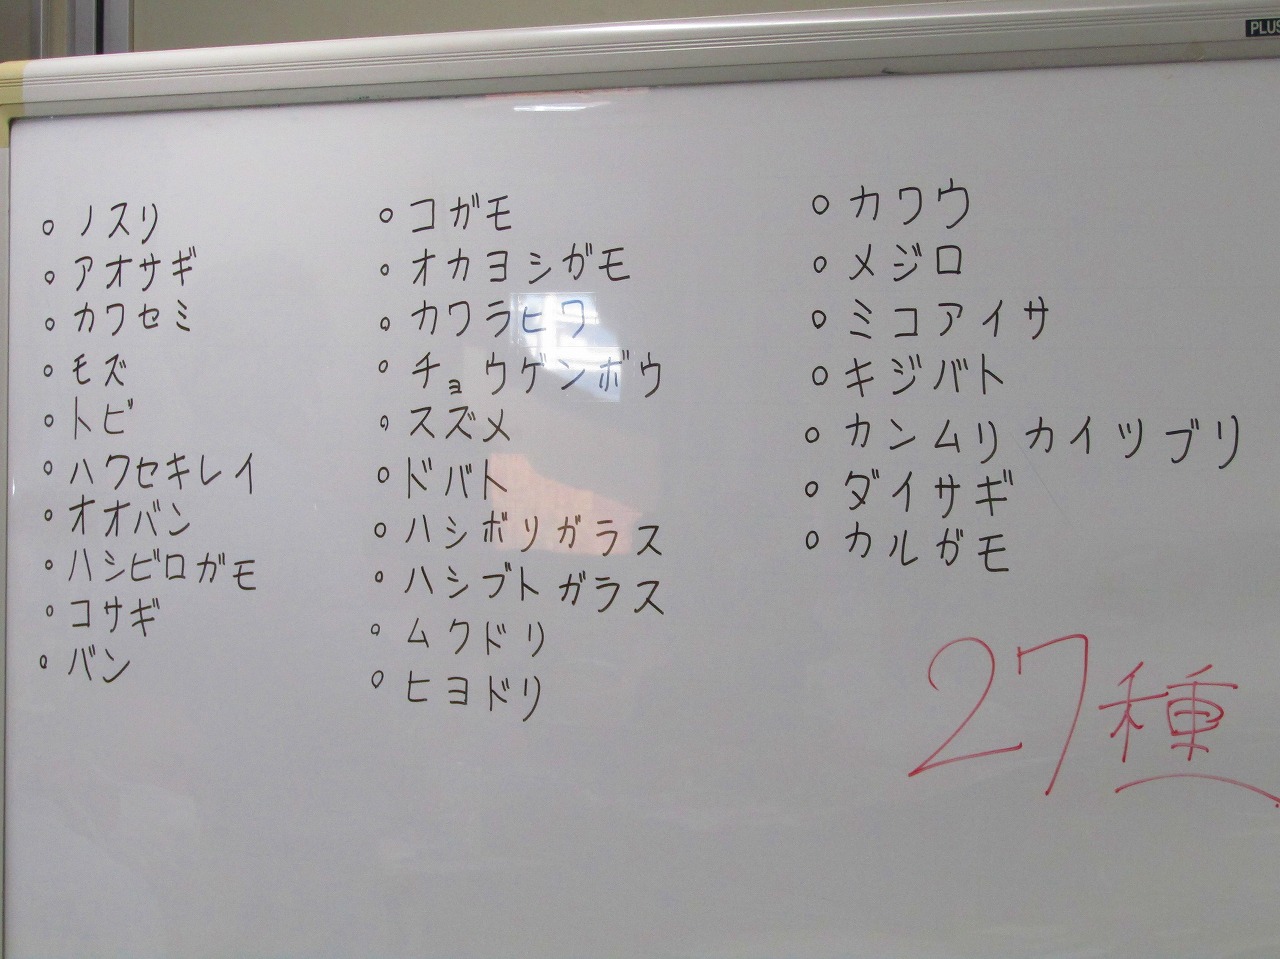 PLUS
○ノスリ
○アオサギ
○カワセミ
○モズ
○トビ
○ハクセキレイ
○オオバン
○ハシビロガモ
○コサギ
○バン
○コガモ
○オカヨシガモ
○カワラヒワ
○チョウゲンボウ
○スズメ
○ドバト
○ハシボリガラス
○ハシブトガラス
○ムクドリ
○ヒヨドリ
○カワウ
○メジロ
○ミコアイサ
○キジバト
○カンムリカイツブリ
○ダイサギ
○カルガモ
27種